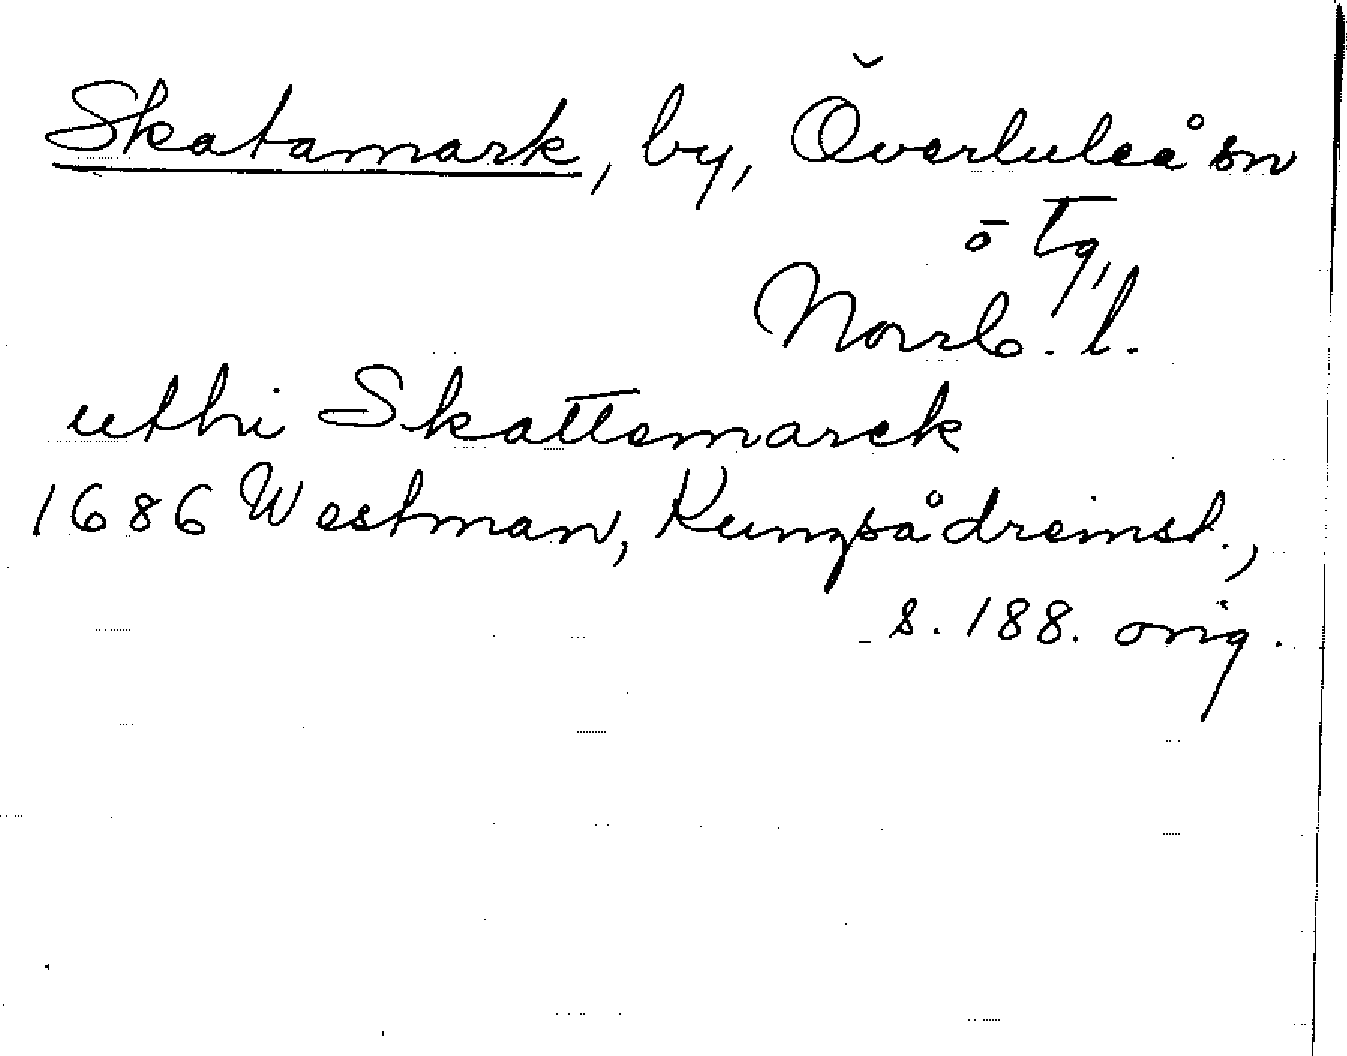 Skatamark, by, Överluleå sn
ö tg,
Norrb. l.
uthi Skattemarck
1686 Westman, Kungsådreinst.,
s. 188. orig.